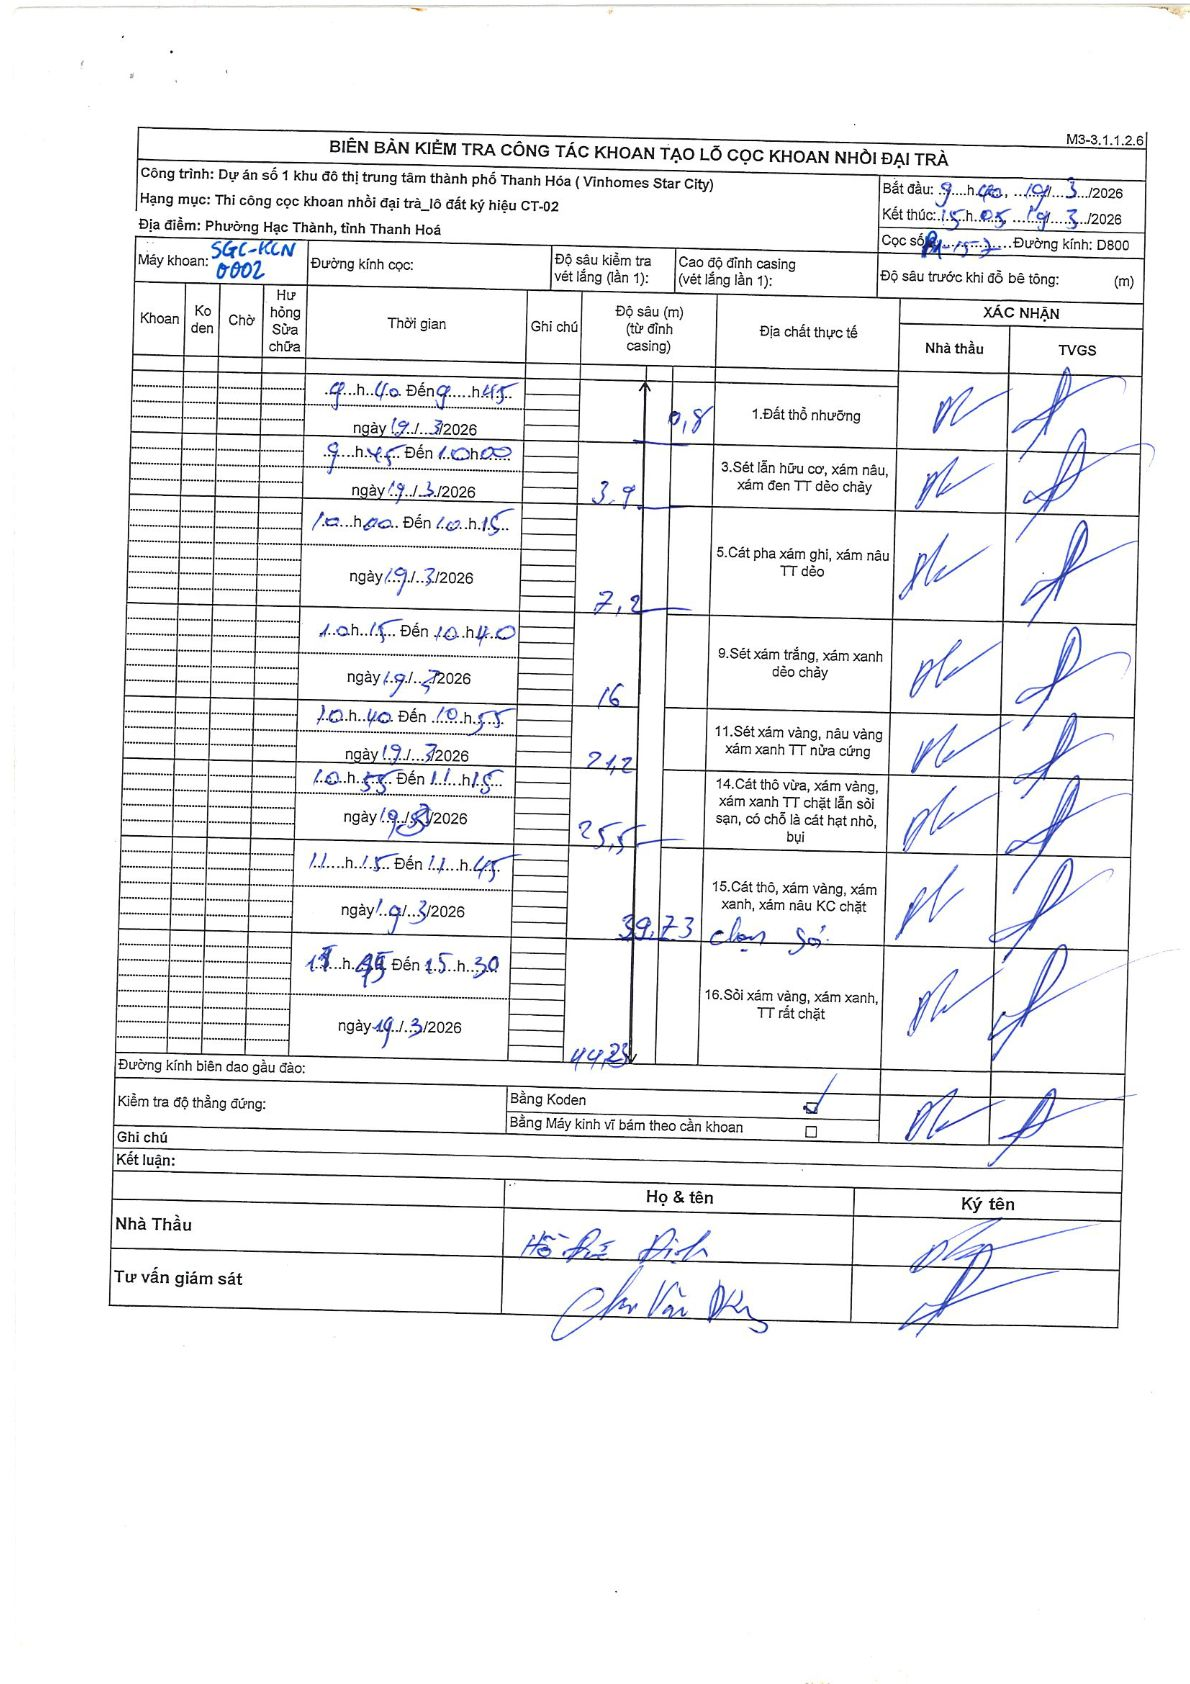 M3-3.1.1.2.6
BIÊN BẢN KIỂM TRA CÔNG TÁC KHOAN TẠO LỖ CỌC KHOAN NHỒI ĐẠI TRÀ
Công trình: Dự án số 1 khu đô thị trung tâm thành phố Thanh Hóa ( Vinhomes Star City)
Hạng mục: Thi công cọc khoan nhồi đại trà_lô đất ký hiệu CT-02
Địa điểm: Phường Hạc Thành, tỉnh Thanh Hoá
Bắt đầu: 9....h.40, ...19/..3../2026
Kết thúc: 15.h.05....19...3../2026
Cọc số: Đường kính: D800
Máy khoan: SGC-KCN 0002
Đường kính cọc:
Độ sâu kiểm tra vét lắng (lần 1):
Cao độ đỉnh casing (vét lắng lần 1):
Độ sâu trước khi đổ bê tông: (m)
Khoan
Ko den
Chờ
Hư hỏng Sửa chữa
Thời gian
Ghi chú
Độ sâu (m) (từ đỉnh casing)
Địa chất thực tế
XÁC NHẬN
Nhà thầu
TVGS
9...h..40 Đến 9.....h.45
ngày 19../..3/2026
0,8
1.Đất thổ nhưỡng
9...h.45 Đến 10h00
ngày 19../.3/2026
3.9
3.Sét lẫn hữu cơ, xám nâu, xám đen TT dẻo chảy
10...h00.. Đến 10..h.15
ngày 19./..3/2026
7,2
5.Cát pha xám ghi, xám nâu TT dẻo
10.h..15.. Đến 10.h40
ngày 19./...3/2026
16
9.Sét xám trắng, xám xanh dẻo chảy
10.h..40 Đến .10.h.55
ngày 19./...3/2026
21,2
11.Sét xám vàng, nâu vàng xám xanh TT nửa cứng
10.h.55 Đến 11...h15
ngày 19./3/2026
25,5
14.Cát thô vừa, xám vàng, xám xanh TT chặt lẫn sỏi sạn, có chỗ là cát hạt nhỏ, bụi
11....h.15.. Đến 11....h.45
ngày 19/..3/2026
39,73
15.Cát thô, xám vàng, xám xanh, xám nâu KC chặt
Đến 15..h.30
ngày 19../..3/2026
44,23
16.Sỏi xám vàng, xám xanh, TT rất chặt
Đường kính biên dao gầu đào:
Kiểm tra độ thẳng đứng:
Bằng Koden ☑
Bằng Máy kinh vĩ bám theo cần khoan ☐
Ghi chú
Kết luận:
Họ & tên
Ký tên
Nhà Thầu
Tư vấn giám sát